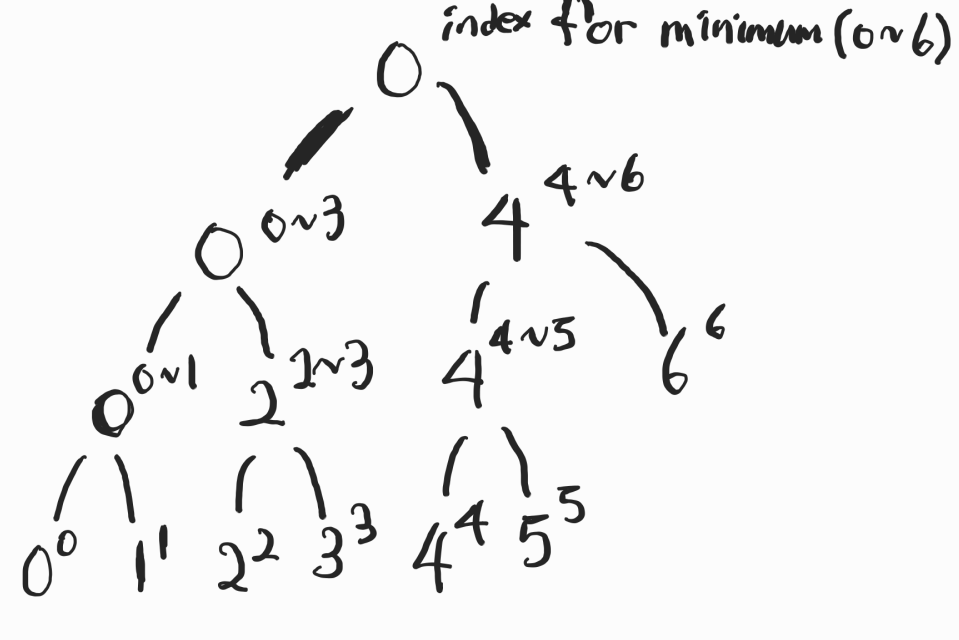 index for minimum (0~6)
0
0 0~3
4 4~6
0 0~1
2 2~3
4 4~5
6 6
0 0
1 1
2 2
3 3
4 4
5 5